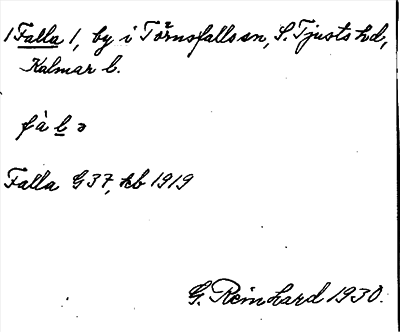 /Falla/, by i Törnsfalls sn, S. Tjusts hd,
Kalmar l.
fàl̲ə
Falla G 37, kb 1919
G. Reinhard 1930.